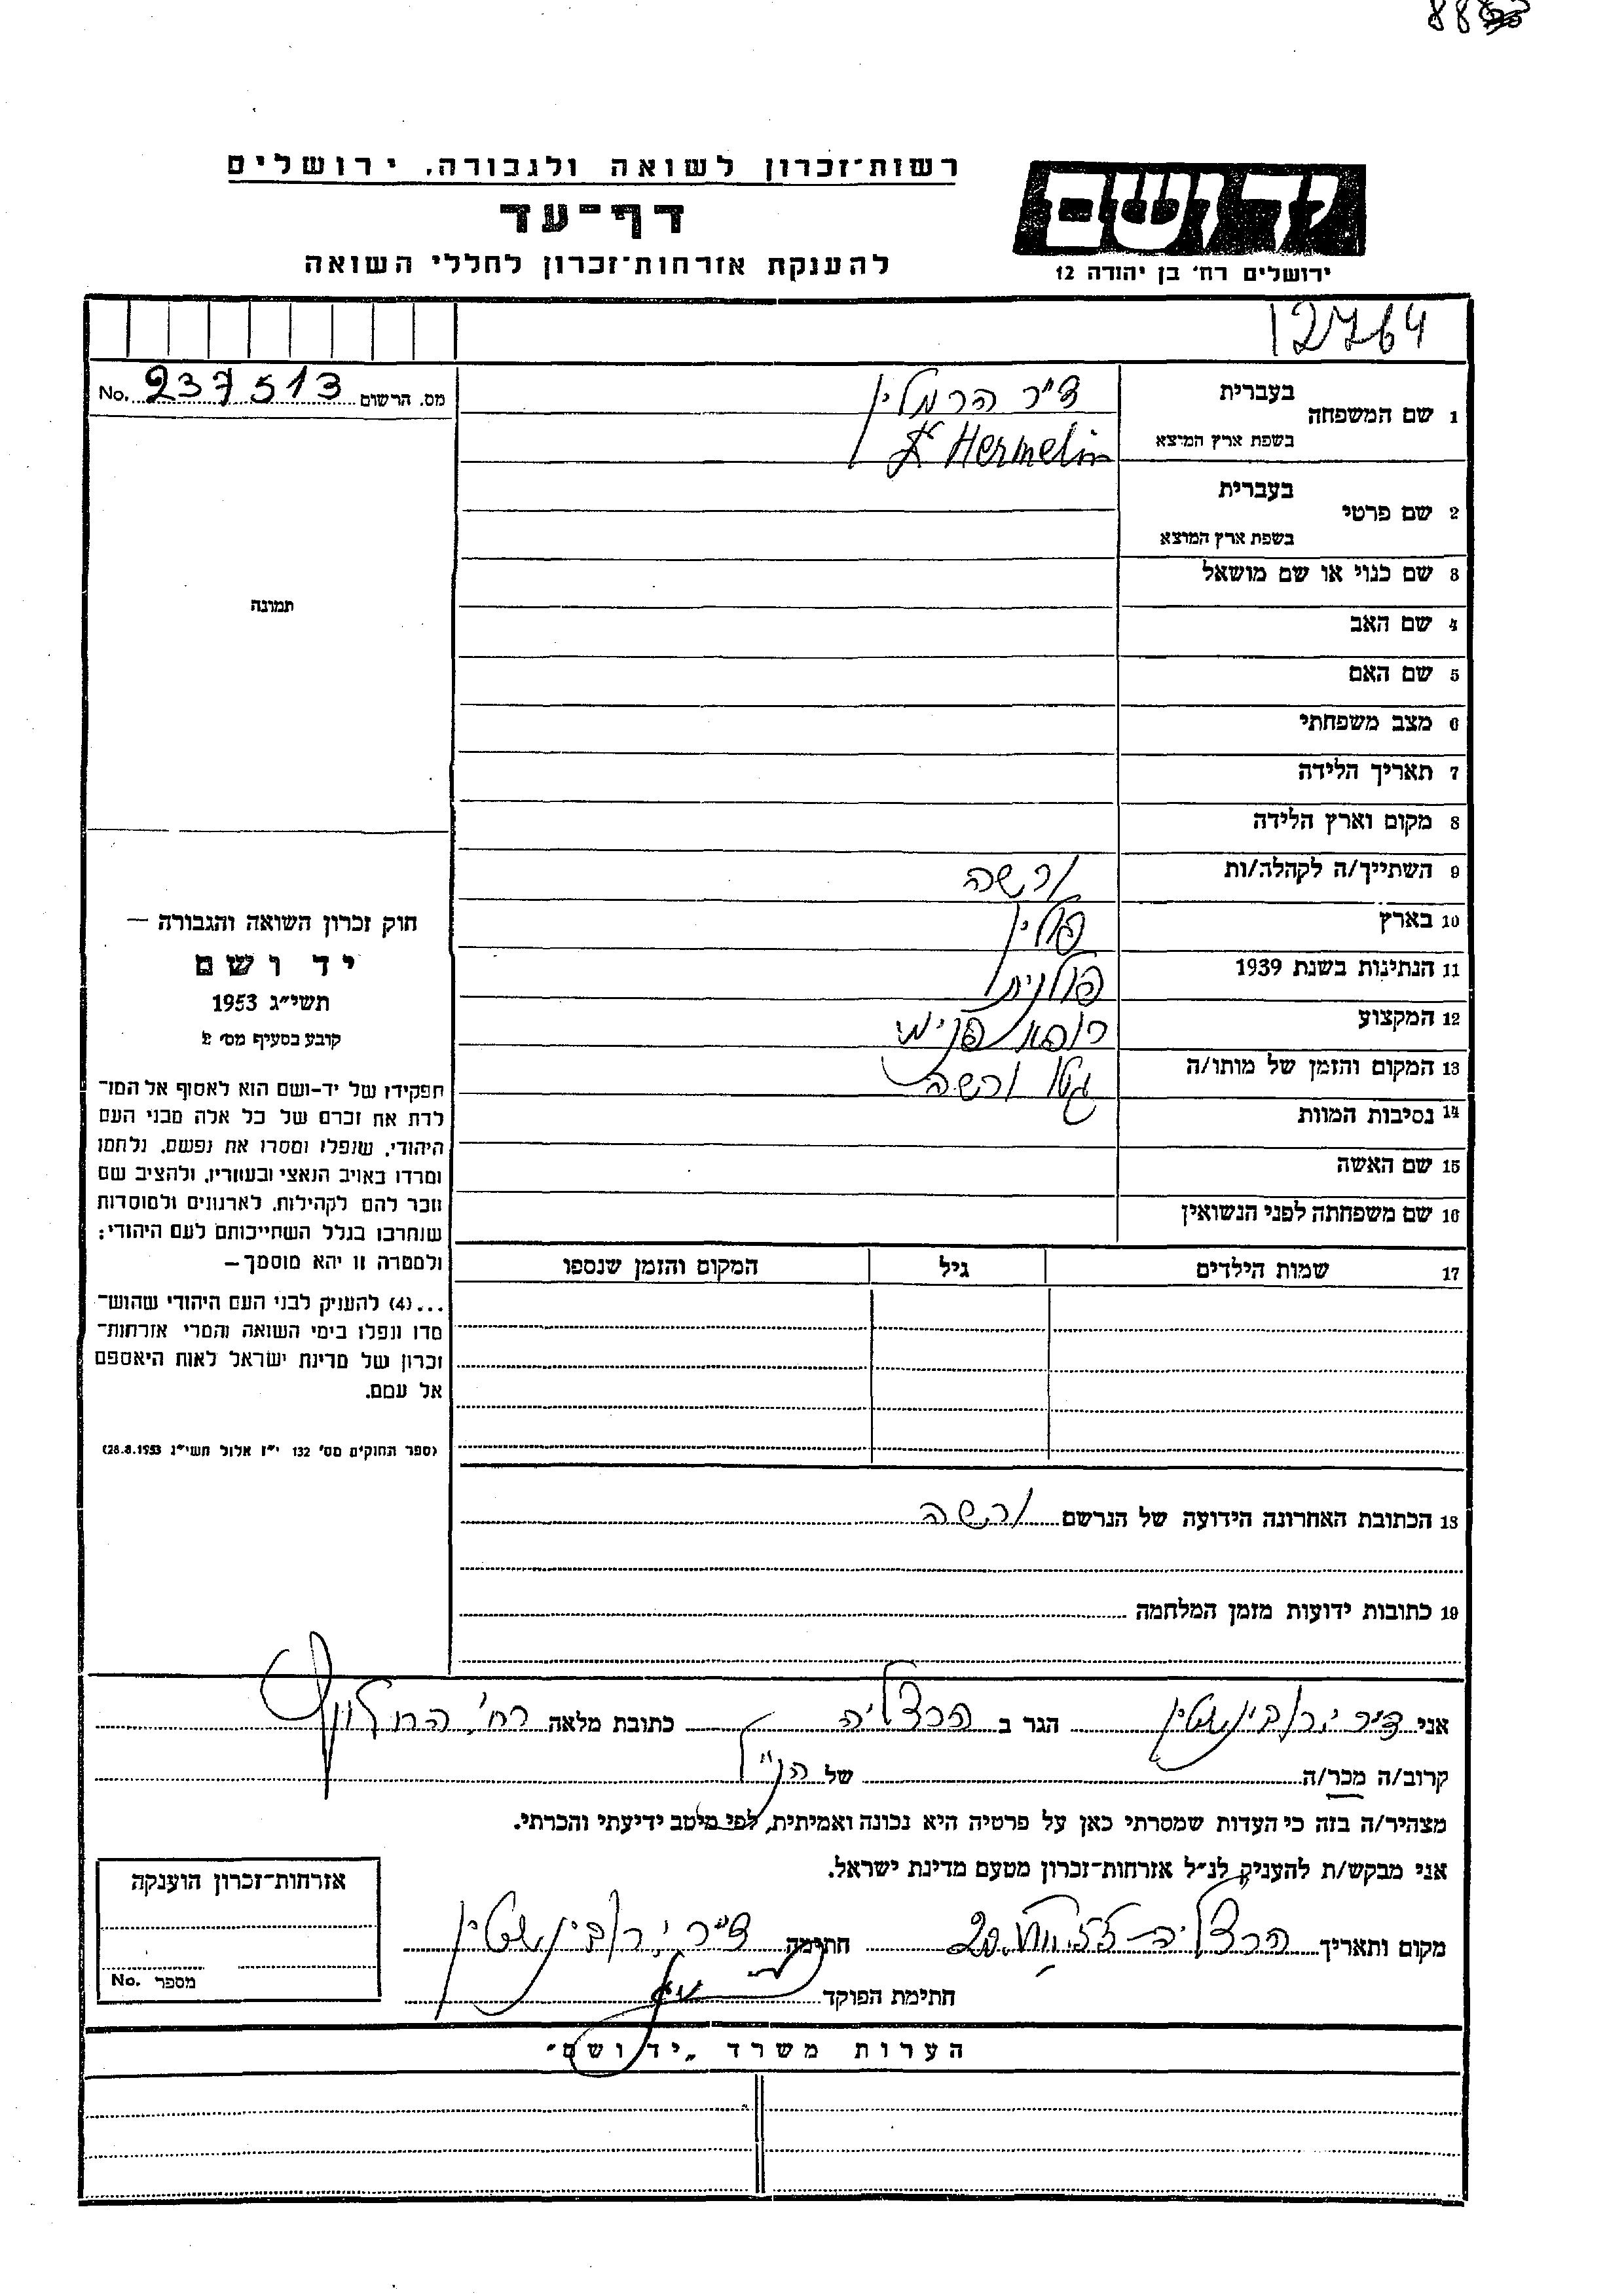 88
רשות־זכרון לשואה ולגבורה, ירושלים
דף־עד
להענקת אזרחות־זכרון לחללי השואה
ידושם
ירושלים רח' בן יהודה 12
12764
מס. הרשום 237513 No.
1 שם המשפחה
בעברית ד"ר הרמלין
בשפת ארץ המוצא Dr Hermelin
2 שם פרטי
בעברית
בשפת ארץ המוצא
3 שם כנוי או שם מושאל
4 שם האב
5 שם האם
6 מצב משפחתי
7 תאריך הלידה
8 מקום וארץ הלידה
9 השתייך/ה לקהלה/ות ורשה
10 בארץ פולין
11 הנתינות בשנת 1939 פולנית
12 המקצוע רופא פנימי
13 המקום והזמן של מותו/ה גטו ורשה
14 נסיבות המוות
15 שם האשה
16 שם משפחתה לפני הנשואין
17 שמות הילדים גיל המקום והזמן שנספו
18 הכתובת האחרונה הידועה של הנרשם ורשה
19 כתובות ידועות מזמן המלחמה
תמונה
חוק זכרון השואה והגבורה —
יד ושם
תשי"ג 1953
קובע בסעיף מס' 2
תפקידו של יד-ושם הוא לאסוף אל המו־
לדת את זכרם של כל אלה מבני העם
היהודי, שנפלו ומסרו את נפשם, נלחמו
ומרדו באויב הנאצי ובעוזריו, ולהציב שם
וזכר להם לקהילות, לארגונים ולמוסדות
שנחרבו בגלל השתייכותם לעם היהודי;
ולמטרה זו יהא מוסמך —
...(4) להעניק לבני העם היהודי שהוש־
מדו ונפלו בימי השואה והמרי אזרחות־
זכרון של מדינת ישראל לאות היאספם
אל עמם.
(ספר החוקים מס' 132 י"ז אלול תשי"ג 28.8.1953)
אני ד"ר י. רובינשטין הגר ב הרצליה כתובת מלאה רח'
קרוב/ה מכר/ה של הנ"ל
מצהיר/ה בזה כי העדות שמסרתי כאן על פרטיה היא נכונה ואמיתית, לפי מיטב ידיעתי והכרתי.
אני מבקש/ת להעניק לנ"ל אזרחות־זכרון מטעם מדינת ישראל.
מקום ותאריך הרצליה 20.VIII.55 חתימה ד"ר י. רובינשטין
חתימת הפוקד
אזרחות־זכרון הוענקה
מספר No.
הערות משרד „יד ושם"